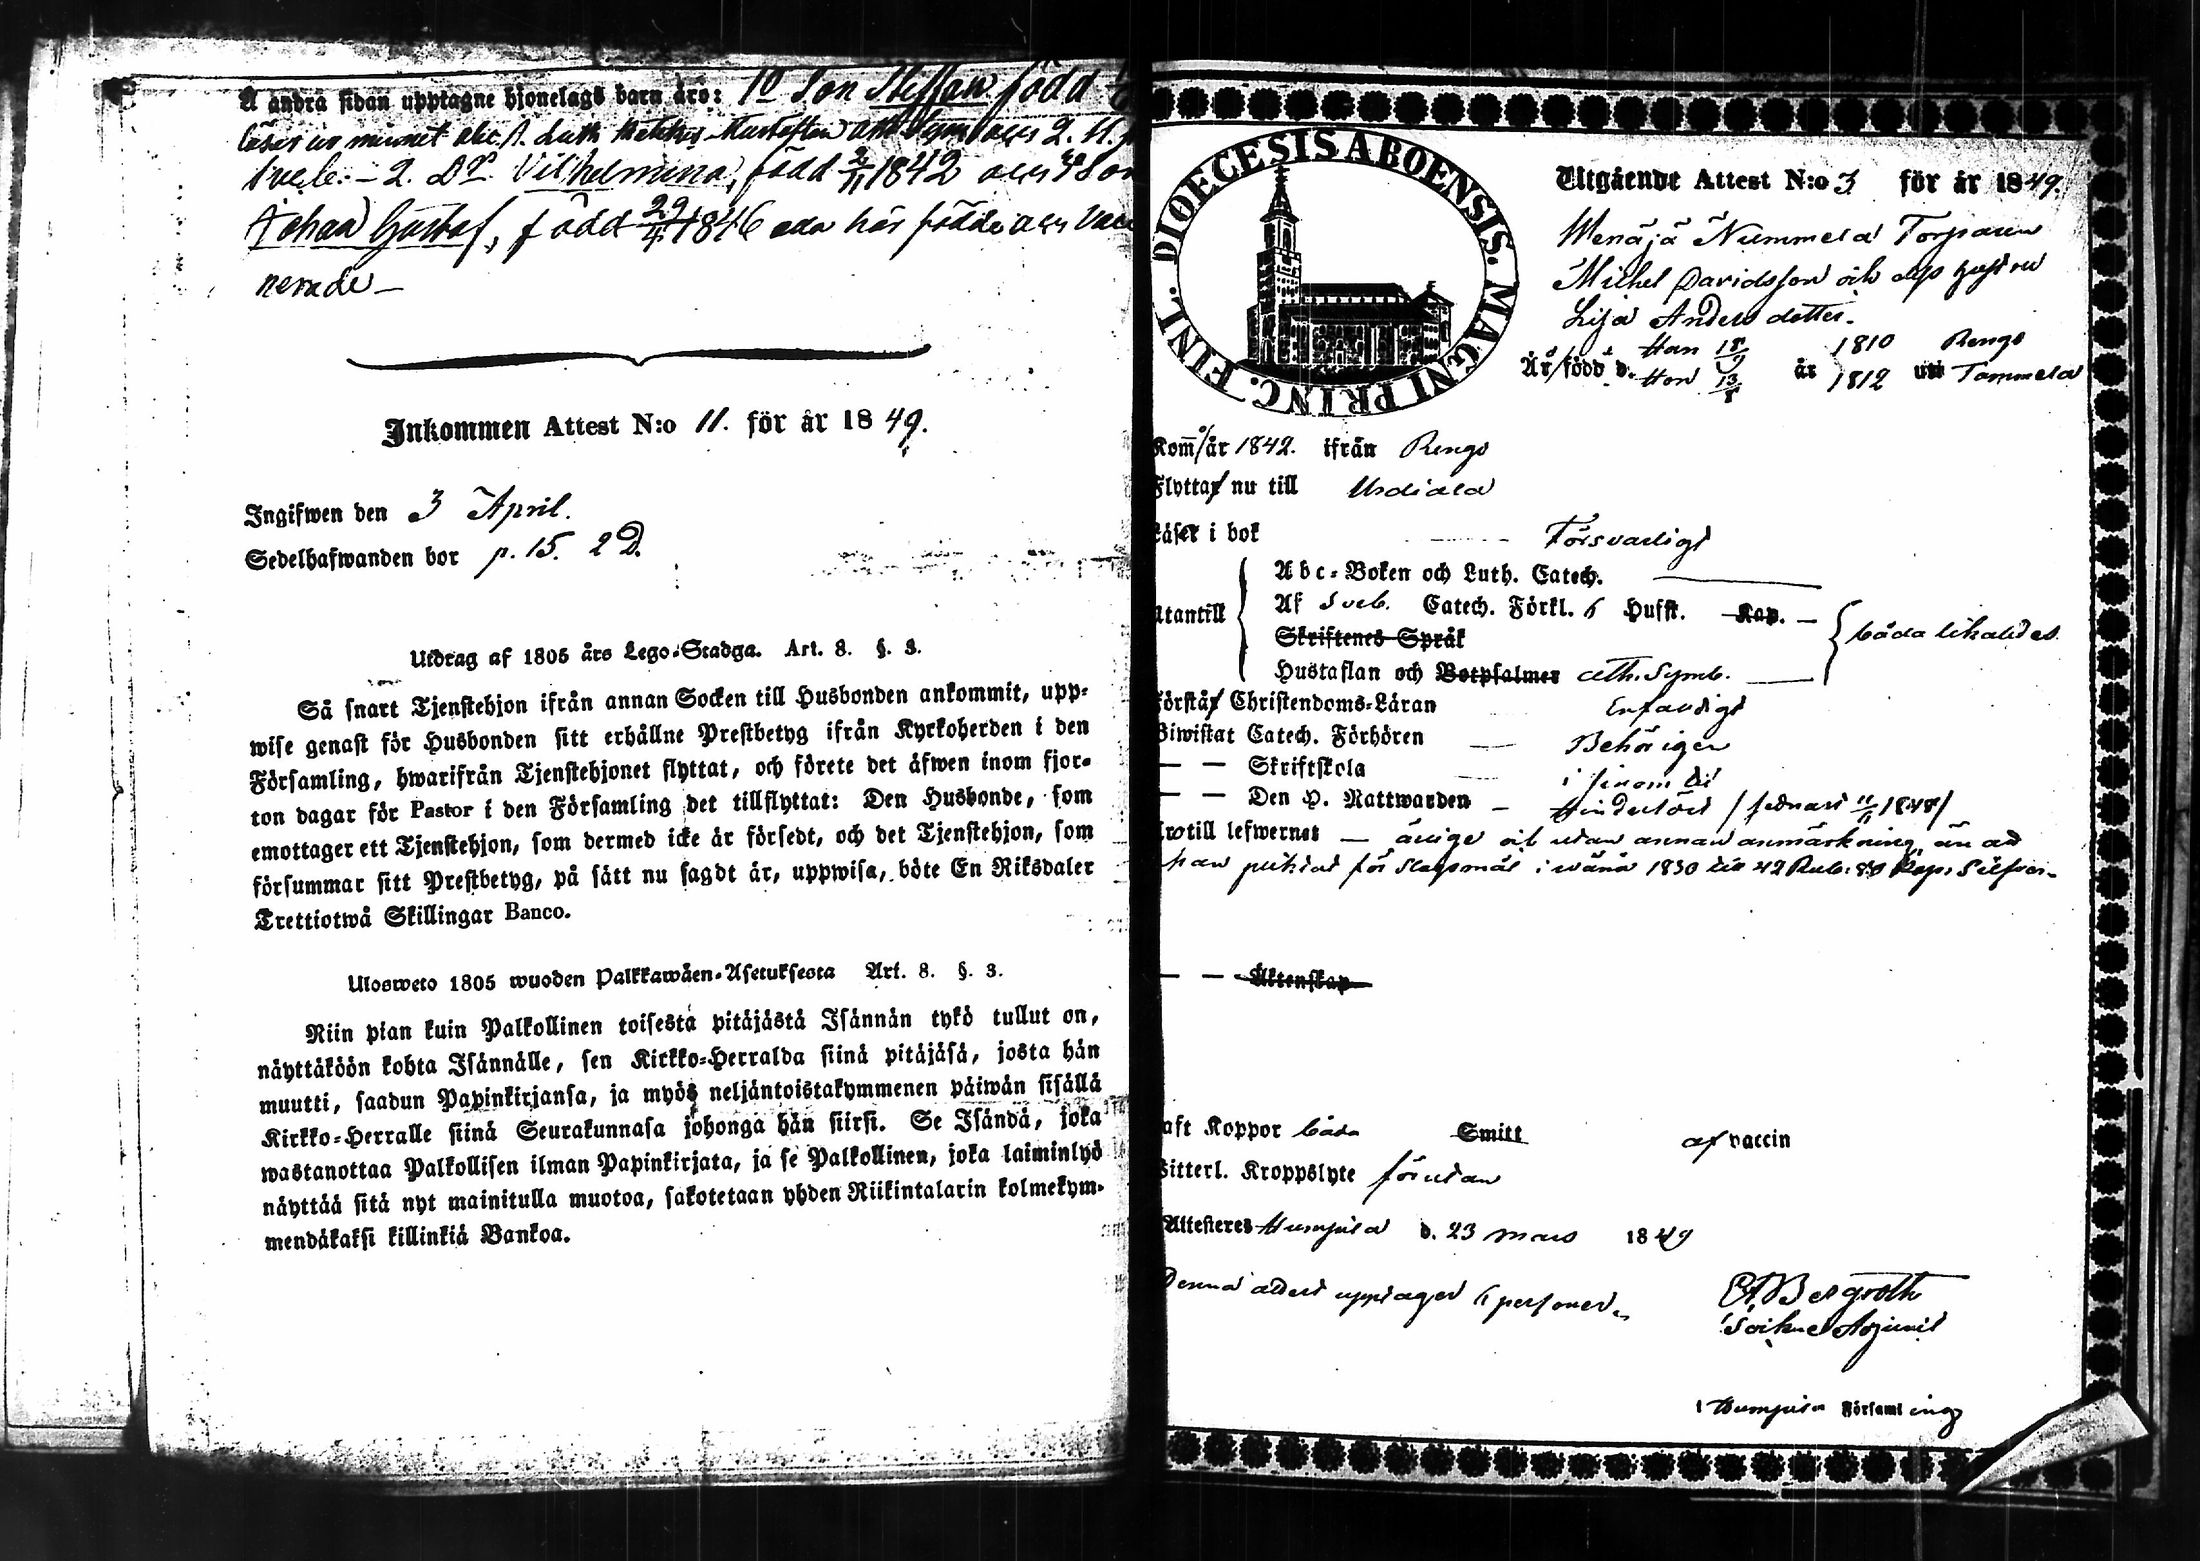 Å andra sidan upptagne hjonelags barn äro: 1º Son Steffan född
läser ur minnet abc, s. Luth. Hustaflan Ath. Symb. 2. H.
Sveb. – 2. Dr. Vilhelmina, född 2/11 1842 3º Son
Johan Gustaf, född 29/4 1846 här födde Vacci
nerade –
Inkommen Attest N:o 11. för år 1849.
Ingifwen den 3 April.
Sedelhafwanden bor p. 15. 2 D.
Utdrag af 1805 års Lego-Stadga. Art. 8. §. 3.
Så snart Tjenstehjon ifrån annan Socken till Husbonden ankommit, upp-
wise genast för Husbonden sitt erhållne Prestbetyg ifrån Kyrkoherden i den
Församling, hwarifrån Tjenstehjonet flyttat, och förete det äfwen inom fjor-
ton dagar för Pastor i den Församling det tillflyttat: Den Husbonde, som
emottager ett Tjenstehjon, som dermed icke är försedt, och det Tjenstehjon, som
försummar sitt Prestbetyg, på sätt nu sagdt är, uppwisa, böte En Riksdaler
Trettiotwå Skillingar Banco.
Ulosweto 1805 wuoden Palkkawäen-Asetuksesta Art. 8. §. 3.
Niin pian kuin Palkollinen toisesta pitäjästä Isännän tykö tullut on,
näyttäköön kohta Isännälle, sen Kirkko-Herralda siinä pitäjäsä, josta hän
muutti, saadun Papinkirjansa, ja myös neljäntoistakymmenen päiwän sisällä
Kirkko-Herralle siinä Seurakunnasa johonga hän siirsi. Se Isändä, joka
wastanottaa Palkollisen ilman Papinkirjata, ja se Palkollinen, joka laiminlyö
näyttää sitä nyt mainitulla muotoa, sakotetaan yhden Riikintalarin kolmekym-
mendäkaksi killinkiä Bankoa.
DIOECESIS ABOENSIS. MAGNI PRINC. FINL.
Utgående Attest N:o 3 för år 1849.
Menäjä Nummela Torparen
Michel Davidsson och dess hustru
Lisa Andersdotter.
Är/född d. Han 18/9 år 1810 uti Rengo
Hon 13/5 1812 Tammela
Kom/år 1842. ifrån Rengo
Flytta/ nu till Urdiala
Läser i bok Försvarligt
Utantill Abc-Boken och Luth. Catech.
Af Sveb. Catech. Förkl. 6 Hufst. Kap. båda likaledes.
Skriftenes Språk
Hustaflan och Botpsalmer Ath. Symb.
Förstå/ Christendoms-Läran Enfaldigt
Biwistat Catech. Förhören Behörigen
— — Skriftskola i sinom tid
— — Den H. Nattwarden – Hindelöst / sednast 11/11 1848/
I/wtill lefwernet — ärlige och utan annan anmärkning, än att
han pliktat för slagsmål 1830 till 42 Rub: 80 Kop. Silfver.
— — Äktenskap
Haft Koppor båda Smitt af vaccin
Witterl. Kroppslyte förutan
Attesteres Humpila d. 23 mars 1849
Denna attest upptager 5 personer.
Bergroth
Sockne Adjunct
i Humpila Församling